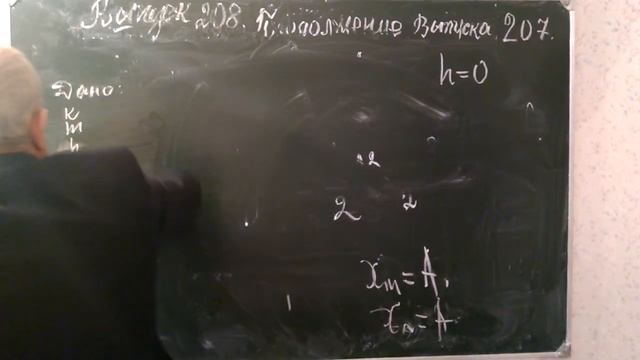 Выпуск 208. Продолжение Выпуска 207.
h=0
Дано:
к
m
h
2
2
2
Xm=A,
=A